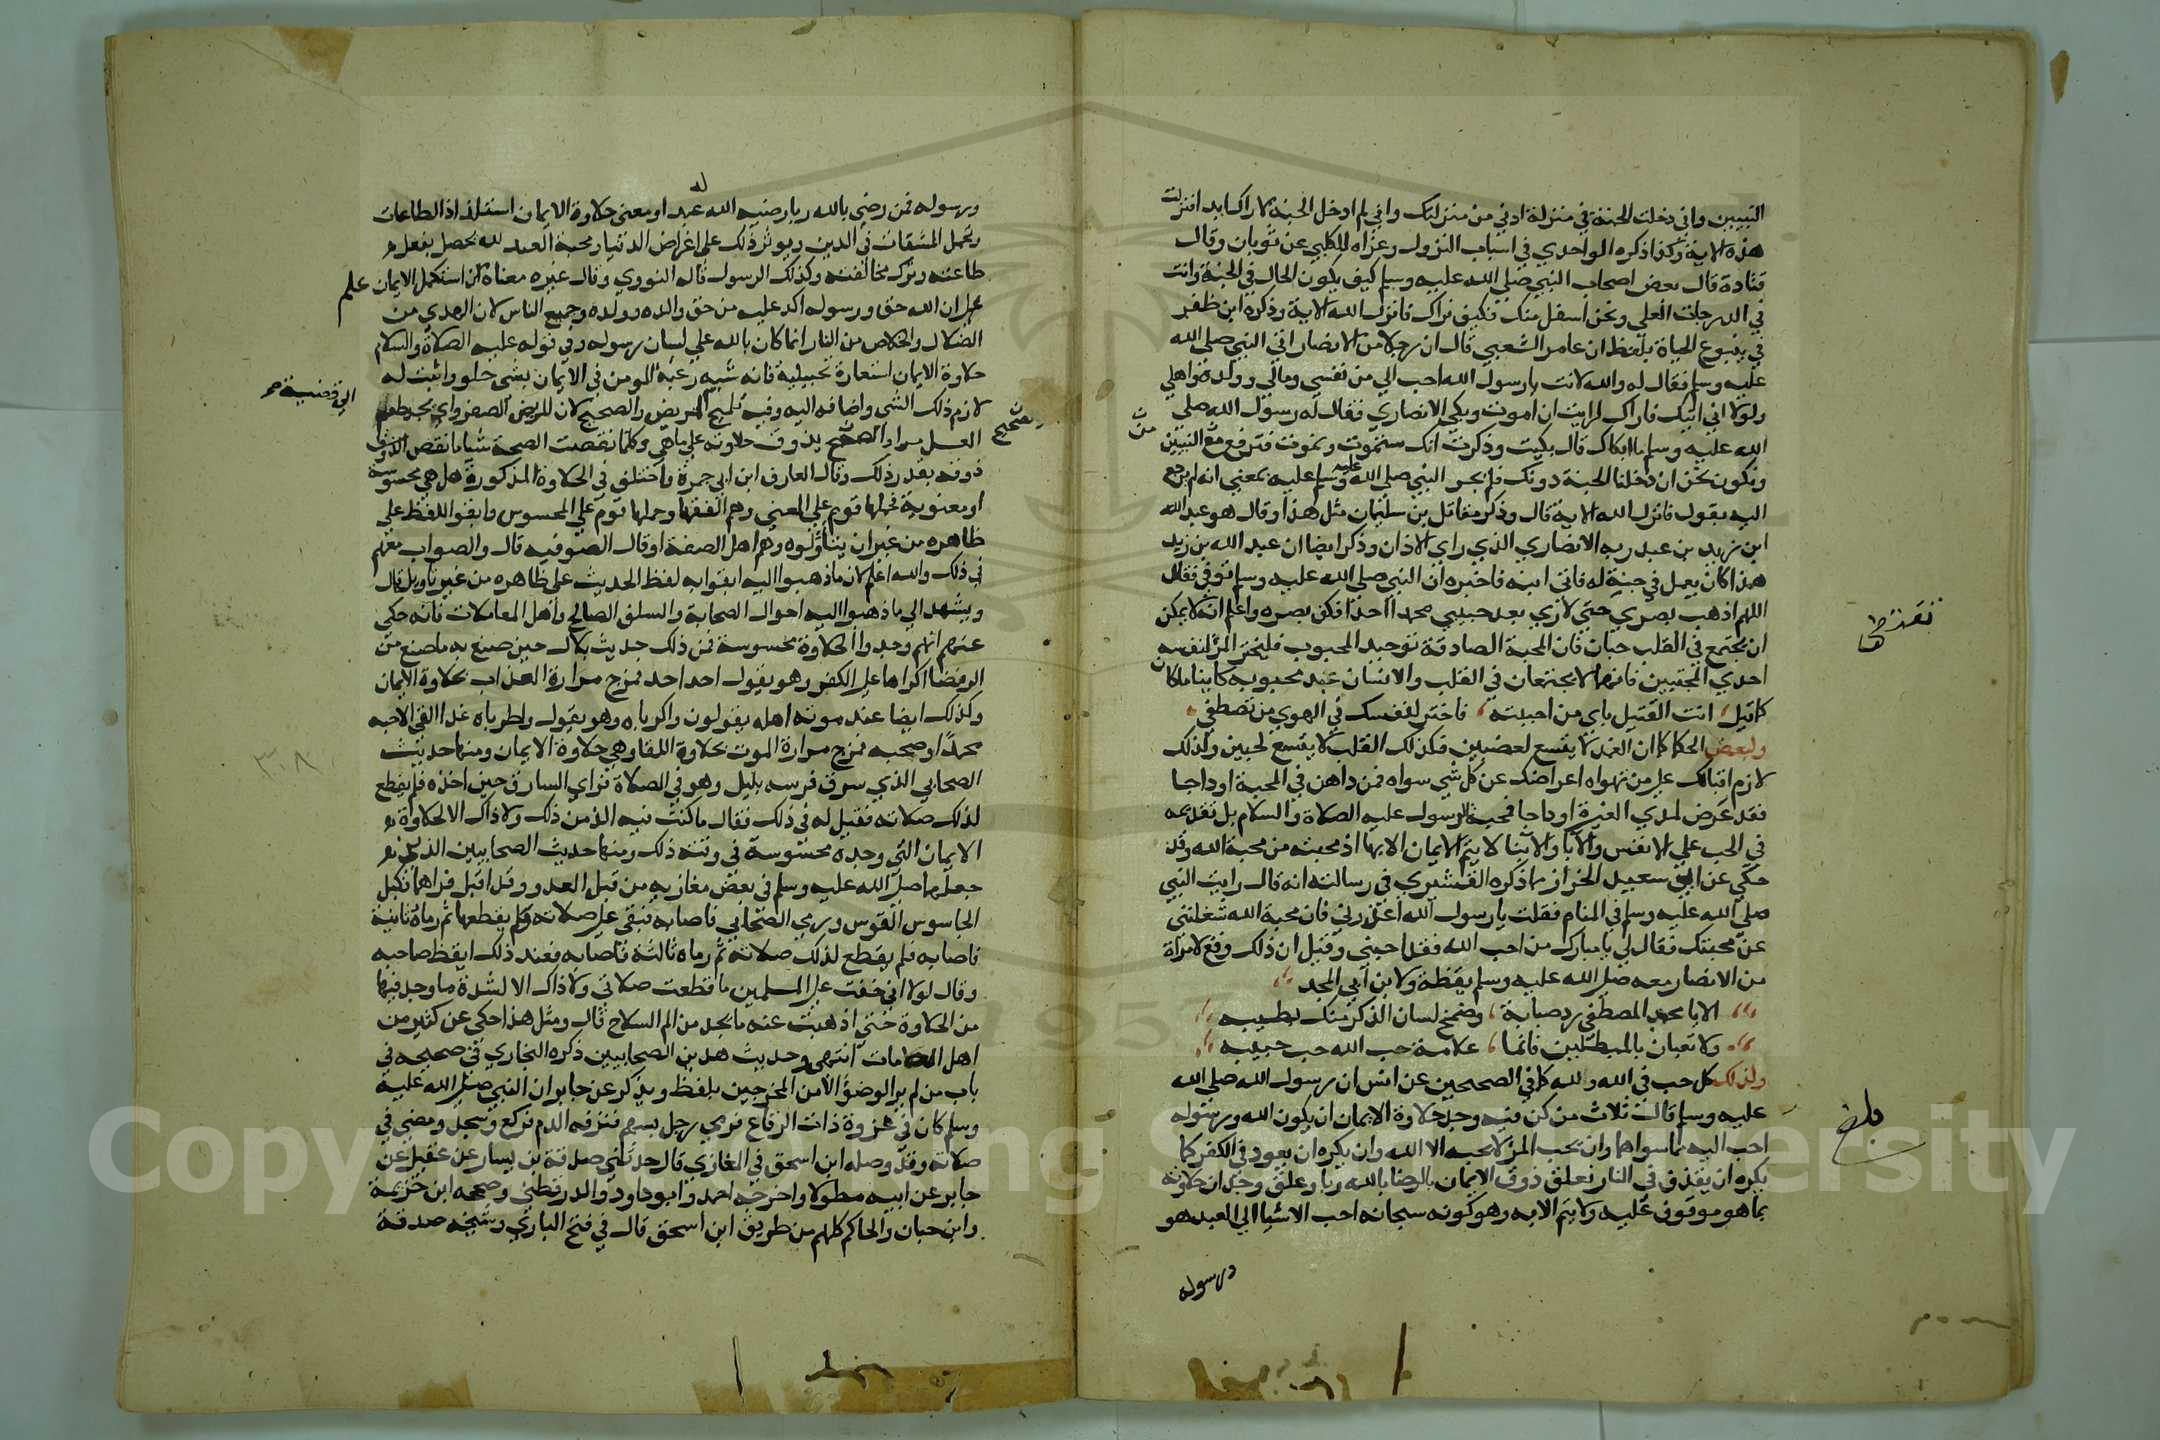 النبيين واني دخلت الجنة في منزلة ادني من منزلتك واني لم ادخل الجنة لا اراك ابدا فنزلت
هذه الاية وكذا ذكره الواحدي في اسباب النزول وعزاه للكلبي عن ثوبان وقال
قتادة قال بعض اصحاب النبي صلي الله عليه وسلم كيف يكون الحال في الجنة وانت
في الدرجات العلي ونحن اسفل منك فكيف نراك فانزل الله الاية وذكره ابن ظفر
في ينبوع الحياة بلفظ ان عامر الشعبي قال ان رجلا من الانصار اتي النبي صلي الله
عليه وسلم فقال له والله لانت يا رسول الله احب الي من نفسي ومالي وولدي واهلي
ولولا اني اتيك فاراك لرايت ان اموت وبكي الانصاري فقال له رسول الله صلي
الله عليه وسلم ما ابكاك قال بكيت وذكرت انك ستموت ونموت فترفع مع النبيين
ونكون نحن ان دخلنا الجنة دونك فلم يحر النبي صلي الله عليه وسلم عليه بمعني انه لم يرجع
اليه بقول فانزل الله الاية قال وذكر مقاتل بن سليمان مثل هذا وقال هو عبد الله
ابن زيد بن عبد ربه الانصاري الذي راي الاذان وذكر ايضا ان عبد الله بن زيد
هذا كان يعمل في جنة له فاتي ابنه فاخبره ان النبي صلي الله عليه وسلم توفي فقال
اللهم اذهب بصري حتي لا اري بعد حبيبي محمد احدا فكف بصره واعلم انه لا يمكن
ان يجتمع في القلب حبان فان المحبة الصادقة توحيد المحبوب فليختر المرء لنفسه
احدي المحبتين فانهما لا يجتمعان في القلب والانسان عند محبوبه كاينا ما كان
كما قيل انت القتيل باي من احببته فاختر لنفسك في الهوي من تصطفي
ولبعض الحكما كما ان الغمد لا يتسع لعضبين فكذلك القلب لا يتسع لحبين ولذلك
لازم اقبالك علي من تهواه اعراضك عن كل شي سواه فمن داهن في المحبة او داجا
فقد عرض لمدي الغيرة اوداجا فمحبة الرسول عليه الصلاة والسلام بل تقديمه
في الحب علي الانفس والابا والابنا لا يتم الايمان الا بها اذ محبته من محبة الله وقد
حكي عن ابي سعيد الخراز مما ذكره القشيري في رسالته انه قال رايت النبي
صلي الله عليه وسلم في المنام فقلت يا رسول الله اعذرني فان محبة الله شغلتني
عن محبتك فقال لي يا مبارك من احب الله فقد احبني وقيل ان ذلك وقع لامراة
من الانصار معه صلي الله عليه وسلم يقظة ولابن ابي المجد
الا يا محب المصطفي زد صبابة وضمخ لسان الذكر منك بطيبه
ولا تعبان بالمبطلين فانما علامة حب الله حب حبيبه
ولذلك كل حب في الله ولله كما في الصحيحين عن انس ان رسول الله صلي الله
عليه وسلم قال ثلاث من كن فيه وجد حلاوة الايمان ان يكون الله ورسوله
احب اليه مما سواهما وان يحب المرء لا يحبه الا الله وان يكره ان يعود في الكفر كما
يكره ان يقذف في النار فعلق ذوق الايمان بالرضا بالله ربا وعلق وجدان حلاوته
بما هو موقوف عليه ولا يتم الا به وهو كونه سبحانه احب الاشيا الي العبد هو
ورسوله
بلغ
ورسوله فمن رضي بالله ربا رضيه الله له عبدا ومعني حلاوة الايمان استلذاذ الطاعات
وتحمل المشقات في الدين ويوثر ذلك علي اغراض الدنيا ومحبة العبد لله تحصل بفعل
طاعته وترك مخالفته وكذلك الرسول قاله النووي وقال غيره معناه ان استكمل الايمان علم
ان الله حق ورسوله اكد عليه من حق والده وولده وجميع الناس لان الهدي من
الضلال والخلاص من النار انما كان بالله علي لسان رسوله وفي قوله عليه الصلاة والسلام
حلاوة الايمان استعارة تخييلية فانه شبه رغبة المومن في الايمان بشي حلو واثبت له
لازم ذلك الشي واضافه اليه وفيه تلميح المريض والصحيح لان المريض الصفراوي يجد طعم
العسل مرا والصحيح يذوق حلاوته علي ما هي وكلما نقصت الصحة شيا ما نقص
ذوقه بقدر ذلك وقال العارف ابن ابي جمرة واختلف في الحلاوة المذكورة هل هي محسوسة
او معنوية فحملها قوم علي المعني وهم الفقها وحملها قوم علي المحسوس وابقوا اللفظ علي
ظاهره من غير ان يتاولوه وهم اهل الصفة او قال الصوفيه قال والصواب معهم
في ذلك والله اعلم لان ما ذهبوا اليه ابقوا به لفظ الحديث علي ظاهره من غير تاويل قال
ويشهد الي ما ذهبوا اليه احوال الصحابة والسلف الصالح واهل المعاملات فانه حكي
عنهم انهم وجدوا الحلاوة محسوسة فمن ذلك حديث بلال حين صنع به ما صنع من
الرمضا اكراها علي الكفر وهو يقول احد احد فمزج مرارة العذاب بحلاوة الايمان
وكذلك ايضا عند موته اهله يقولون واكرباه وهو يقول واطرباه غدا القي الاحبه
محمدا وصحبه فمزج مرارة الموت بحلاوة اللقا وهي حلاوة الايمان ومنها حديث
الصحابي الذي سرق فرسه بليل وهو في الصلاة فراي السارق حين اخذه فلم يقطع
لذلك صلاته فقيل له في ذلك فقال ما كنت فيه الذ من ذلك ولا ذاك الا لحلاوة
الايمان التي وجده محسوسة في وقته ذلك ومنها حديث الصحابيين الذين
جعلهما صلي الله عليه وسلم في بعض مغازيه من قبل العدو وقد اقبل فراهما فكبل
الجاسوس القوس ورمي الصحابي فاصابه فبقي علي صلاته ولم يقطعها ثم رماه ثانية
فاصابه فلم يقطع لذلك صلاته ثم رماه ثالثة فاصابه فعند ذلك ايقظ صاحبه
وقال لولا اني خفت علي المسلمين ما قطعت صلاتي ولا ذاك الا لشدة ما وجد فيها
من الحلاوة حتي اذهبت عنه ما يجد من الم السلاح قال ومثل هذا حكي عن كثير من
اهل المعاملات انتهي وحديث هذين الصحابيين ذكره البخاري في صحيحه في
باب من لم ير الوضوء الا من المخرجين بلفظ ويذكر عن جابر ان النبي صلي الله عليه
وسلم كان في غزوة ذات الرقاع فرمي رجل بسهم فنزفه الدم فركع وسجد ومضي في
صلاته وقد وصله ابن اسحق في المغازي قال حدثني صدقة بن يسار عن عقيل عن
جابر عن ابيه مطولا واخرجه احمد وابو داود والدرقطني وصححه ابن خزيمة
وابن حبان والحاكم كلهم من طريق ابن اسحق قال في فتح الباري وشيخه صدقة
Copyright King Saud University